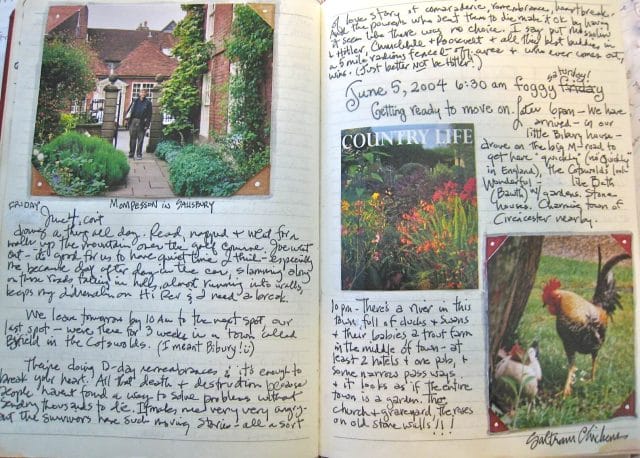 MOMPESSON in SALISBURY
FRIDAY June 4, con't
doing a thing all day. Read, napped & went for a
walk up the mountain over the golf course. Joe went
out - it's good for us to have quiet time, I think - especially
me because day after day in the car, slamming along
on those roads falling in holes, almost running into walls,
keeps my adrenalin on Hi Rev & I need a break.
We leave tomorrow by 10 AM to the next spot, our
last spot - were there for 3 weeks in a town called
in the Cotswolds. (I meant Bibury!)
They're doing D-day remembrances & it's enough to
break your heart. All that death & destruction because
people haven't found a way to solve problems without
sending thousands to die. It makes me very very angry.
but the survivors have such moving stories - all a sort
of love story of comaraderie, remembrance, heartbreak.
And the powers who sent them to die make it ok by making
it seem like there was no choice. I say put
& Hitler, Churchill & Roosevelt & all their best buddies in
a 5 mile radius fenced off and who ever comes out,
wins. (Just better not be Hitler!)
saturday!
June 5, 2004 6:30 am foggy friday
Getting ready to move on. Later 6pm - We have
arrived - in our
little Bibury house -
drove on the big M-road to
get here "quickly" (no "quickly"
in England), the Cotswolds look
Wonderful - like Bath
(Bauth) w/ gardens. Stone
houses. Charming town of
Cirencister nearby.
COUNTRY LIFE
10 pm - There's a river in this
town full of ducks & swans
& their babies a trout farm
in the middle of town - at
least 2 hotels & one pub, &
some narrow pass ways
& it looks as if the entire
town is a garden. The
church & graveyard, the roses
on old stone walls!!!
Saltram Chickens